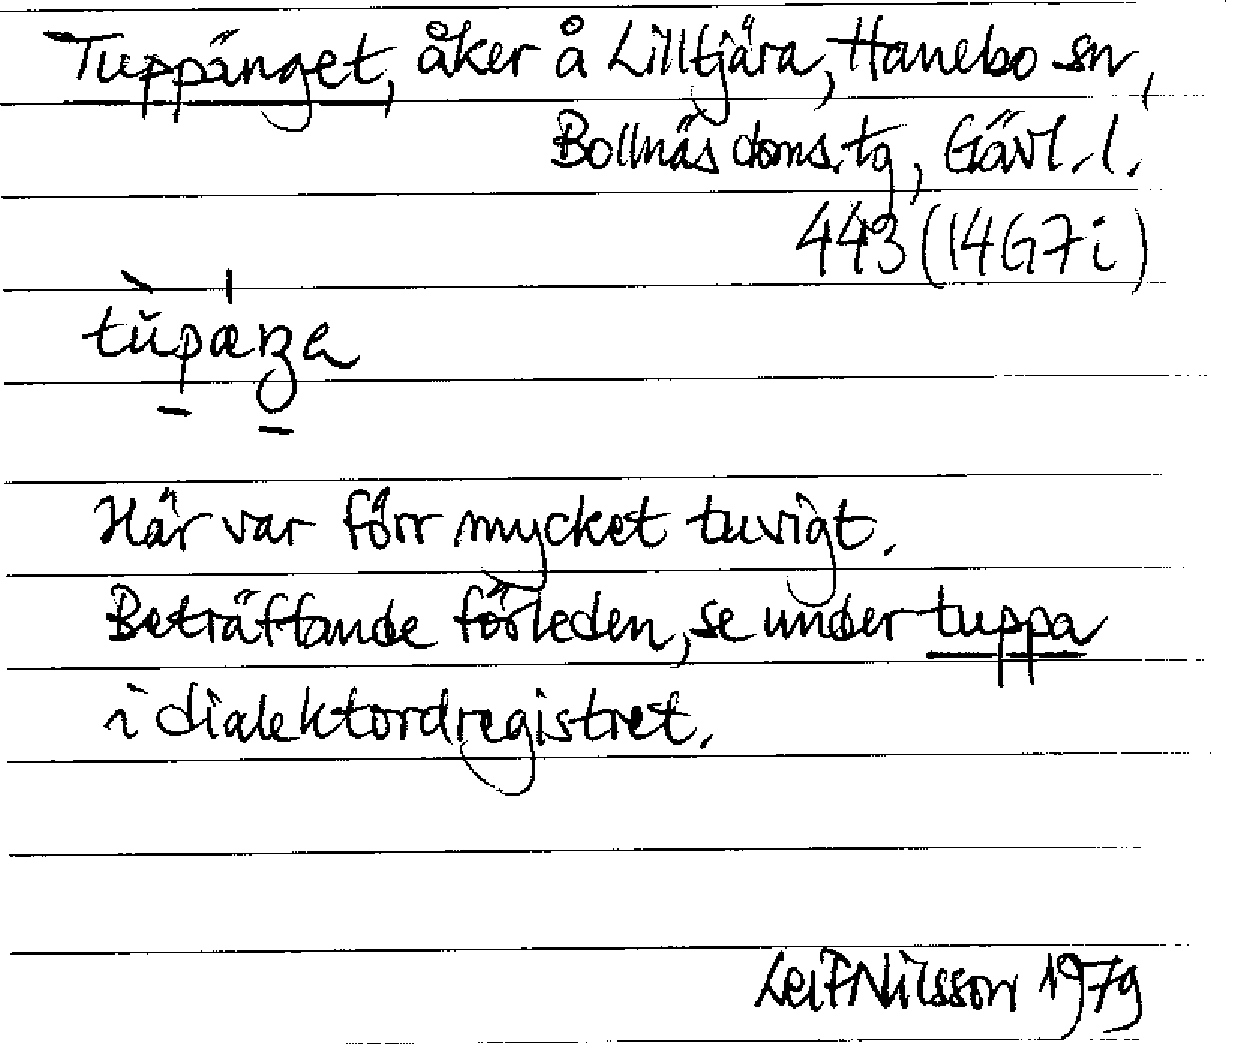 Tuppänget, åker å Lilltjära, Hanebo sn,
Bollnäs doms.tg, Gävl. l.
443 (14G7i)
tùpæŋa
Här var förr mycket tuvigt.
Beträffande förleden, se under tuppa
i dialektordregistret.
Leif Nilsson 1979